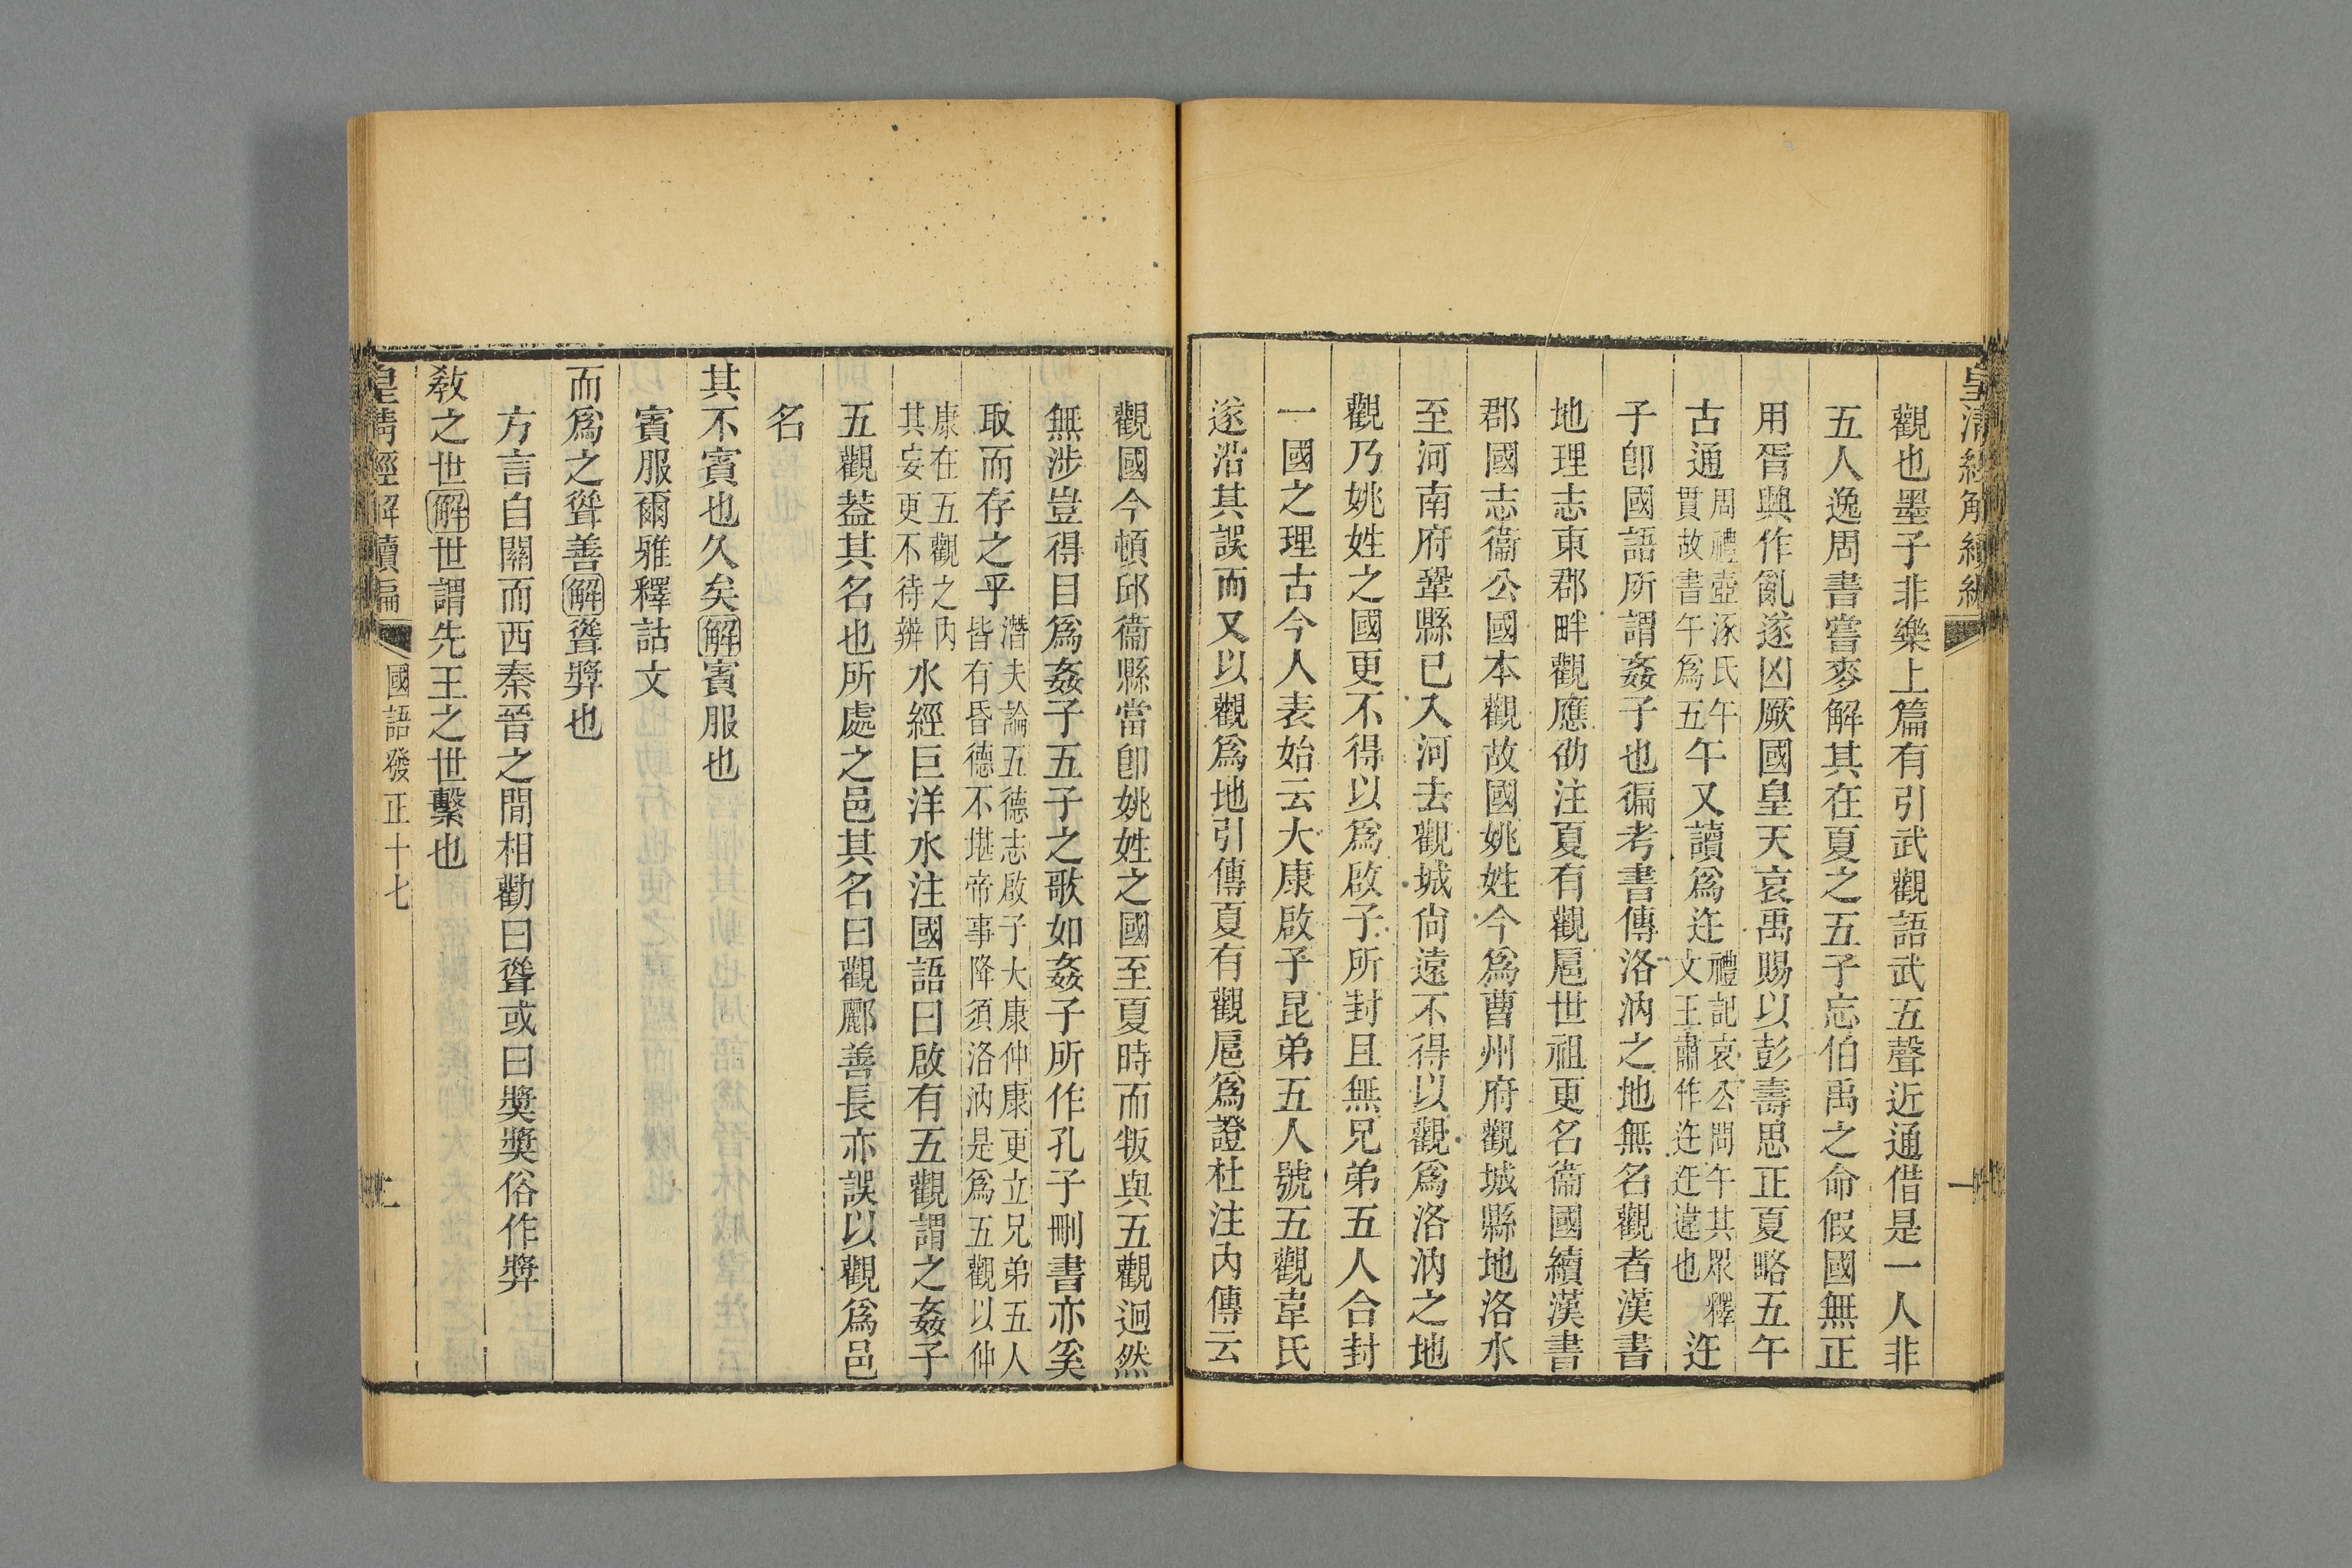 皇清經解續編
觀也墨子非樂上篇有引武觀語武五聲近通借是一人非
五人逸周書嘗麥解其在夏之五子忘伯禹之命假國無正
用胥興作亂遂凶厥國皇天哀禹賜以彭壽思正夏略五午
古通周禮壺涿氏午貫故書午爲五午又讀爲迕禮記哀公問午其眾釋文王肅作迕迕違也迕
子卽國語所謂姦子也徧考書傳洛汭之地無名觀者漢書
地理志東郡畔觀應劭注夏有觀扈世祖更名衞國續漢書
郡國志衞公國本觀故國姚姓今爲曹州府觀城縣地洛水
至河南府鞏縣已入河去觀城尙遠不得以觀爲洛汭之地
觀乃姚姓之國更不得以爲啟子所封且無兄弟五人合封
一國之理古今人表始云大康啟子昆弟五人號五觀韋氏
遂沿其誤而又以觀爲地引傳夏有觀扈爲證杜注內傳云
觀國今頓邱衞縣當卽姚姓之國至夏時而叛與五觀迴然
無涉豈得目爲姦子五子之歌如姦子所作孔子刪書亦奚
取而存之乎潛夫論五德志啟子大康仲康更立兄弟五人皆有昏德不堪帝事降須洛汭是爲五觀以仲
康在五觀之內其妄更不待辨水經巨洋水注國語曰啟有五觀謂之姦子
五觀葢其名也所處之邑其名曰觀酈善長亦誤以觀爲邑
名
其不賓也久矣解賓服也
賓服爾雅釋詁文
而爲之聳善解聳獎也
方言自關而西秦晉之間相勸曰聳或曰獎獎俗作弊
敎之世解世謂先王之世繫也
皇清經解續編
國語發正十七